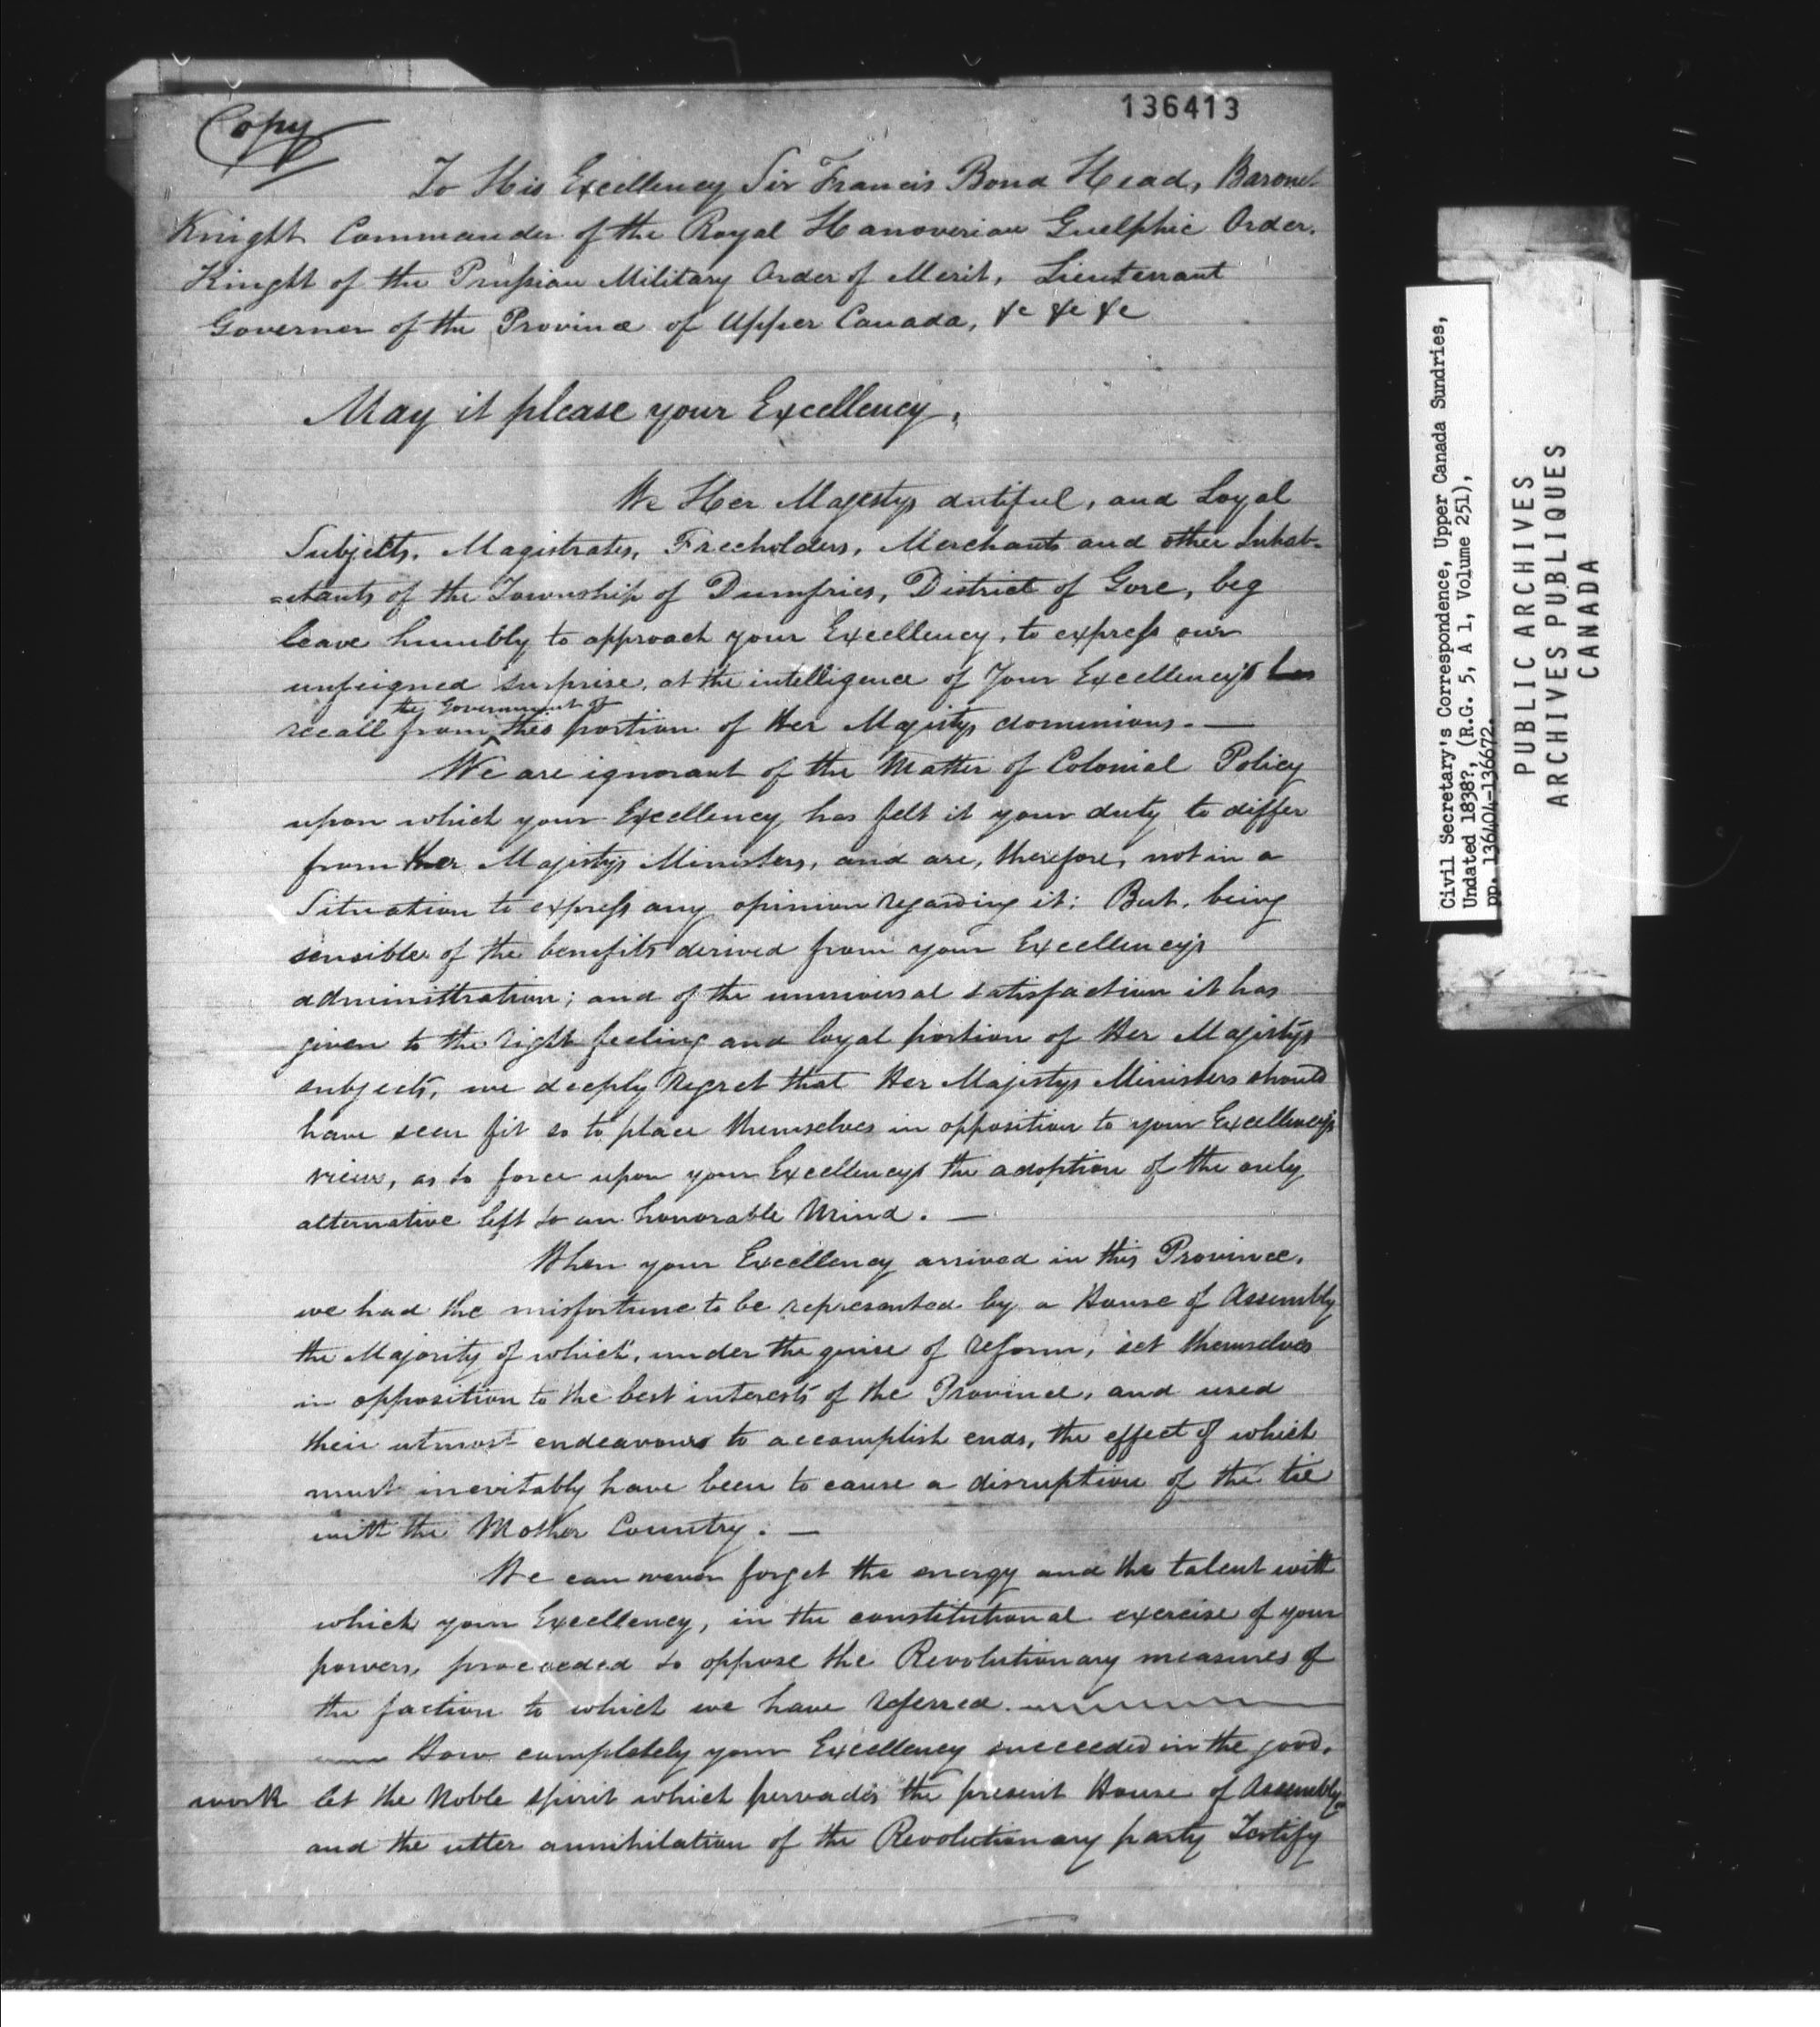 Copy
136413
To His Excellency Sir Francis Bond Head, Baronet
Knight Commander of the Royal Hanoverian Guelphic Order.
Kinght of the Prussian Military Order of Merit, Lieutenant
Governer of the Province of Upper Canada, &c &c &c
May it please your Excellency,
We Her Majestys dutiful, and Loyal
Subjects, Magistrates, Freeholders, Merchants and other Inhab-
=itants of the Township of Dumfries, District of Gore, beg
leave humbly to approach your Excellency, to express our
unfeigned surprise, at the intelligence of Your Excellency's
the Government of
recall from this portion of Her Majestys dominions. —
We are ignorant of the Matter of Colonial Policy
upon which your Excellency has felt it your duty to differ
from Her Majestys Ministers, and are, therefore, not in a
Situation to express any opinion regarding it: But, being
sensible of the benefits derived from your Excellency's
administration; and of the unniversal satisfaction it has
given to the right feeling and loyal portion of Her Majesty's
subjects, we deeply regret that Her Majestys Ministers should
have seen fit so to place themselves in opposition to your Excellency's
views, as to force upon your Excellencys the adoption of the only
alternative left to an honorable Mind. —
When your Excellency arrived in this Province,
we had the misfortune to be represented by a House of Assembly
the Majority of which, under the guise of reform, set themselves
in opposition to the best interests of the Province, and used
their utmost endeavours to accomplish ends, the effect of which
must inevitably have been to cause a disruption of the tie
with the Mother Country. —
We can never forget the energy and the talent with
which your Excellency, in the constitutional exercise of your
powers, proceeded to oppose the Revolutionary measures of
the faction to which we have referred.
How completely your Excellency succeeded in the good,
work let the Noble spirit which pervades the present House of Assembly
and the utter annihilation of the Revolutionary party Testify
Civil Secretary's Correspondence, Upper Canada Sundries,
Undated 1838?, (R.G. 5, A 1, Volume 251),
pp. 136404-136672.
PUBLIC ARCHIVES
ARCHIVES PUBLIQUES
CANADA